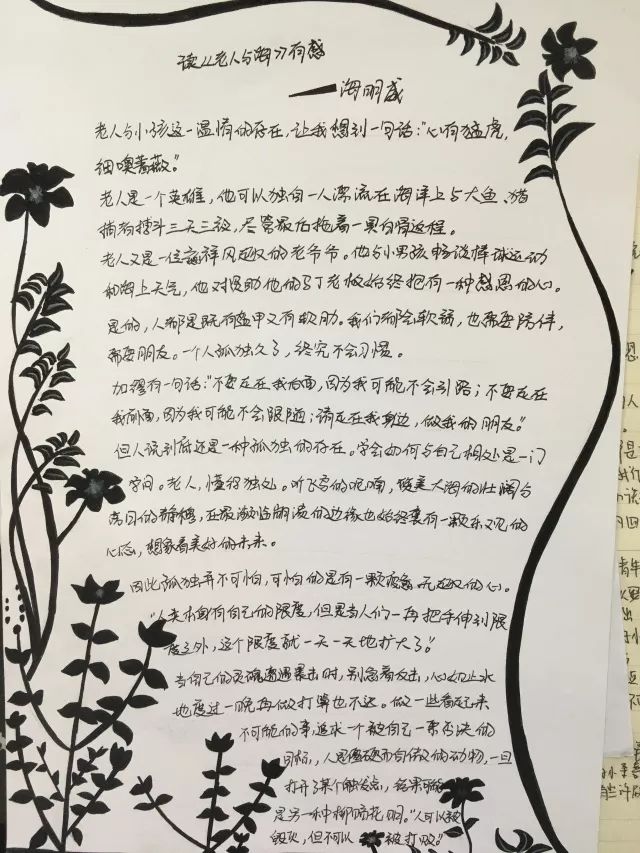 读《老人与海》有感
——海明威
老人与小孩这一温情的存在，让我想到一句话："心有猛虎，
细嗅蔷薇。"
老人是一个英雄，他可以独自一人漂流在海洋上与大鱼、
搏斗三天三夜，尽管最后拖着一具白骨返程。
老人又是一位慈祥风趣的老爷爷。他与小男孩畅谈棒球运动
和海上天气，他对援助他的了丁老板始终抱有一种感恩的心。
是的，人都是既有盔甲又有软肋。我们都会软弱，也需要陪伴，
需要朋友。一个人孤独久了，终究不会习惯。
加缪有一句话："不要走在我后面，因为我可能不会引路；不要走在
我前面，因为我可能不会跟随；请走在我身边，做我的朋友。"
但人说到底还是一种孤独的存在。学会如何与自己相处是一门
学问。老人，懂得独处。听飞鸟的呢喃，赞美大海的壮阔与
在最濒临崩溃的边缘也始终装有一颗乐观的
心态，想象着美好的未来。
因此孤独并不可怕，可怕的是有一颗疲惫、无趣的心。
"人类本身有自己的限度，但是当人们一再把手伸到限
度之外，这个限度就一天一天地扩大了。"
当自己的灵魂遭遇暴击时，别急着反击，心如止水
地度过一晚再做打算也不迟。做一些看起来
不可能的事，追求一个被自己一票否决的
目标，人是僵硬而自傲的动物，一旦
打开了某个触发点，结果可能
是另一种柳暗花明。"人可以被
毁灭，但不可以被打败。"